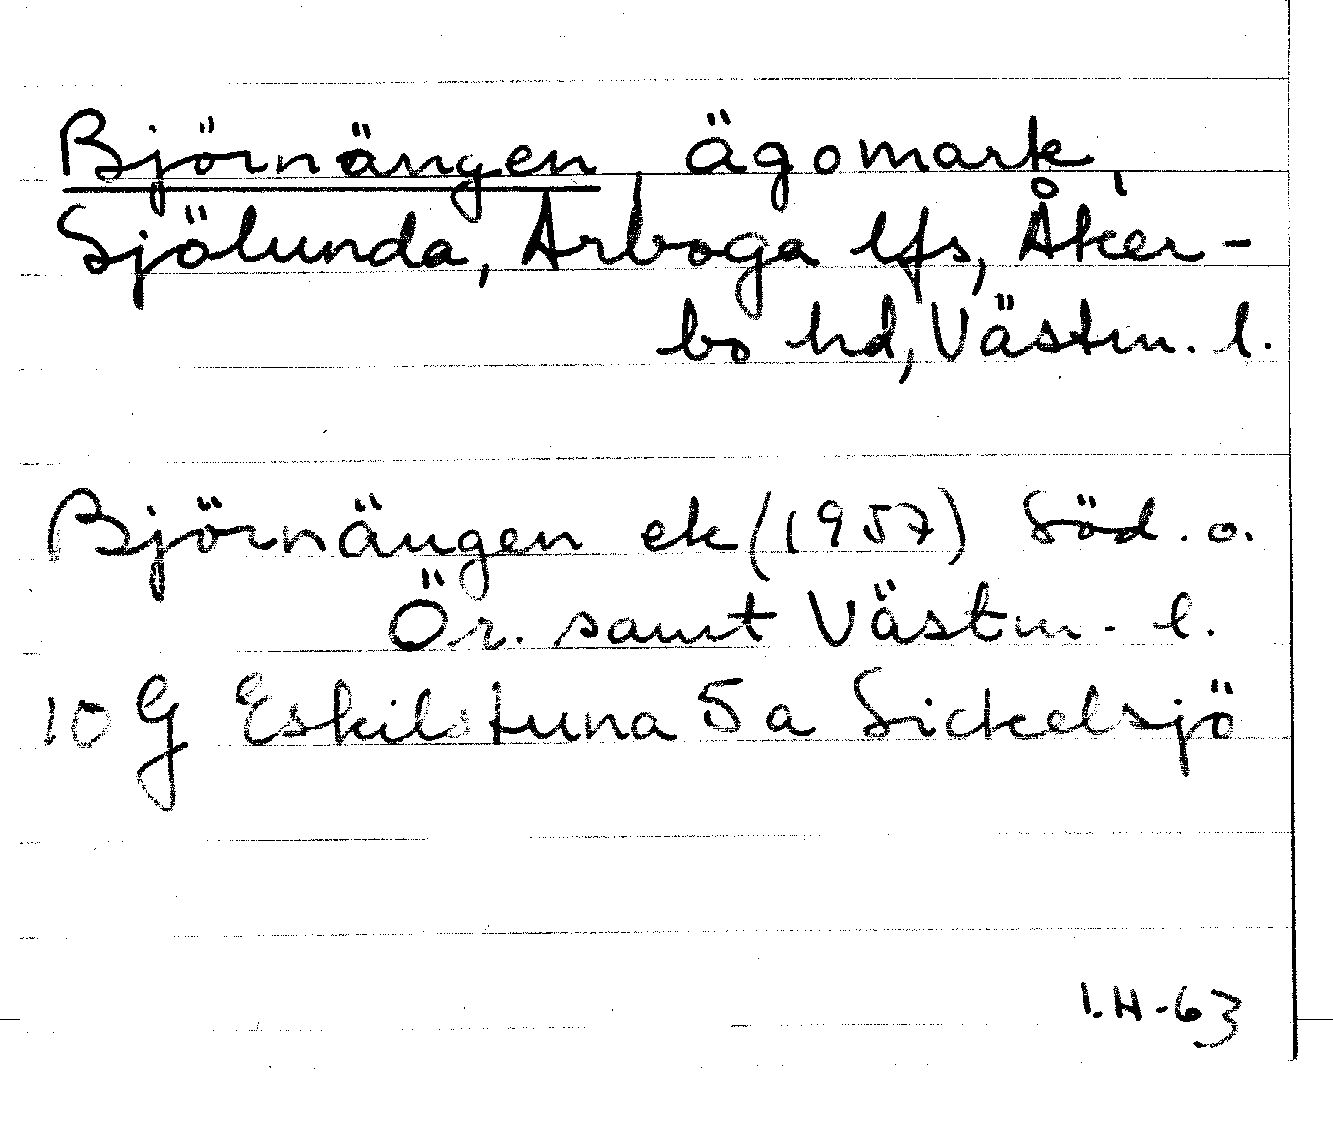 Björnängen ägomark,
Sjölunda, Arboga lfs, Åker-
bo hd, Västm. l.
Björnängen ek (1957) Söd. o.
Ör. samt Västm. l.
10 G Eskilstuna 5 a Sickelsjö
I.H-63